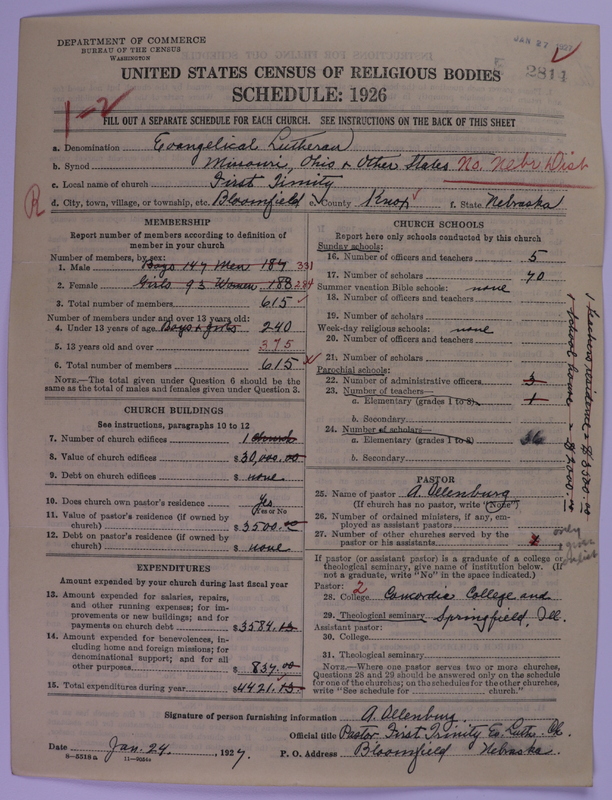 DEPARTMENT OF COMMERCE
BUREAU OF THE CENSUS
WASHINGTON
JAN 27 1927
2814
UNITED STATES CENSUS OF RELIGIOUS BODIES
SCHEDULE: 1926
1-2
FILL OUT A SEPARATE SCHEDULE FOR EACH CHURCH. SEE INSTRUCTIONS ON THE BACK OF THIS SHEET
a. Denomination Evangelical Lutheran
b. Synod Missouri, Ohio & Other States No. Nebr Dist
c. Local name of church First Trinity
R
d. City, town, village, or township, etc. Bloomfield e. County Knox f. State Nebraska
MEMBERSHIP
Report number of members according to definition of
member in your church
Number of members, by sex:
1. Male Boys 147 Men 187 331
2. Female Girls 93 Women 188 284
3. Total number of members 615
Number of members under and over 13 years old:
4. Under 13 years of age Boys & girls 240
5. 13 years old and over 375
6. Total number of members 615
NOTE.—The total given under Question 6 should be the
same as the total of males and females given under Question 3.
CHURCH BUILDINGS
See instructions, paragraphs 10 to 12
7. Number of church edifices 1 Church
8. Value of church edifices $ 30,000.00
9. Debt on church edifices $ none
10. Does church own pastor's residence? Yes
Yes or No
11. Value of pastor's residence (if owned by
church) $ 3500.00
12. Debt on pastor's residence (if owned by
church) $ none
EXPENDITURES
Amount expended by your church during last fiscal year
13. Amount expended for salaries, repairs,
and other running expenses; for im-
provements or new buildings; and for
payments on church debt $ 3584.15
14. Amount expended for benevolences, in-
cluding home and foreign missions; for
denominational support; and for all
other purposes $ 837.00
15. Total expenditures during year $ 4421.15
CHURCH SCHOOLS
Report here only schools conducted by this church
Sunday schools:
16. Number of officers and teachers 5
17. Number of scholars 70
Summer vacation Bible schools: none
18. Number of officers and teachers
19. Number of scholars
Week-day religious schools: none
20. Number of officers and teachers
21. Number of scholars
Parochial schools:
22. Number of administrative officers 3
23. Number of teachers—
a. Elementary (grades 1 to 8) 1
b. Secondary
24. Number of scholars—
a. Elementary (grades 1 to 8) 36
b. Secondary
1 Teachers residence = $ 3500.00
1 School house = $ 2000.00
PASTOR
25. Name of pastor A. Ollenburg
(If church has no pastor, write "None")
26. Number of ordained ministers, if any, em-
ployed as assistant pastors
27. Number of other churches served by the
pastor or his assistants
only
If pastor (or assistant pastor) is a graduate of a college or
theological seminary, give name of institution below. (If
not a graduate, write "No" in the space indicated.)
Pastor: 2
28. College Concordia College and
29. Theological seminary Springfield, Ill.
Assistant pastor:
30. College
31. Theological seminary
NOTE.—Where one pastor serves two or more churches,
Questions 28 and 29 should be answered only on the schedule
for one of the churches; on the schedules for the other churches,
write "See schedule for church."
Signature of person furnishing information A. Ollenburg
Official title Pastor First Trinity Ev. Luth. Ch.
Date Jan. 24, 1927. P. O. Address Bloomfield Nebraska.
8-5318a 11-9056